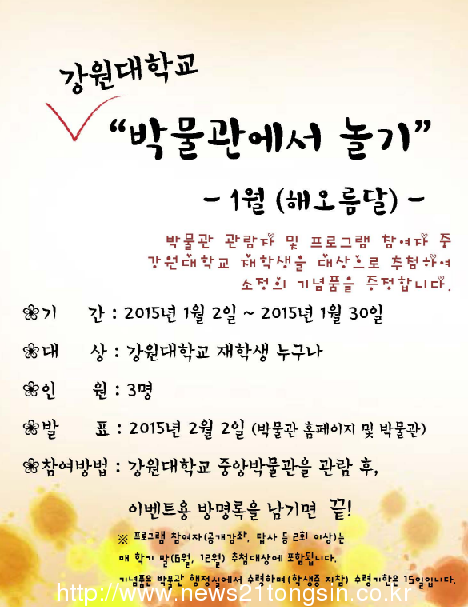 강원대학교
“박물관에서 놀기”
- 1월 (해오름달) -
박물관 관람자 및 프로그램 참여자 중
강원대학교 재학생을 대상으로 추첨하여
소정의 기념품을 증정합니다.
❀기 간 : 2015년 1월 2일 ~ 2015년 1월 30일
❀대 상 : 강원대학교 재학생 누구나
❀인 원 : 3명
❀발 표 : 2015년 2월 2일 (박물관 홈페이지 및 박물관)
❀참여방법 : 강원대학교 중앙박물관을 관람 후,
이벤트용 방명록을 남기면 끝!
※ 프로그램 참여자(공개강좌, 답사 등 2회 이상)는
매 학기 말(6월, 12월) 추첨대상에 포함됩니다.
기념품은 박물관 행정실에서 수령하며(학생증 지참) 수령기한은 15일입니다.
http://www.news21tongsin.co.kr